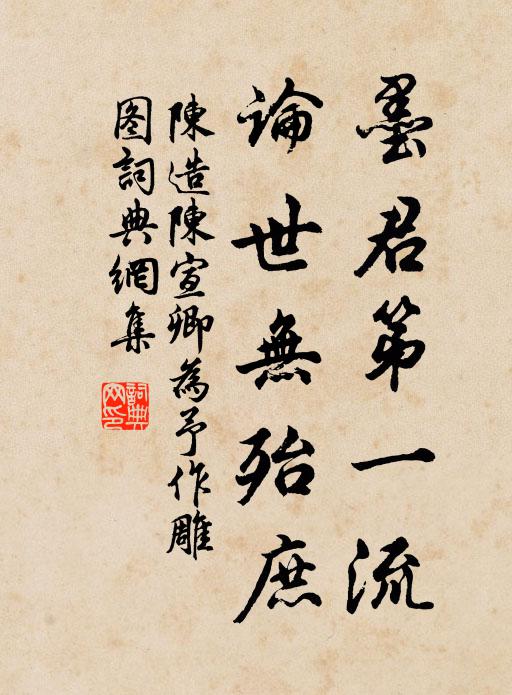 墨君第一流
論世無殆庶
陳造陳宣卿為予作雕
图詞典網集
詞典网印